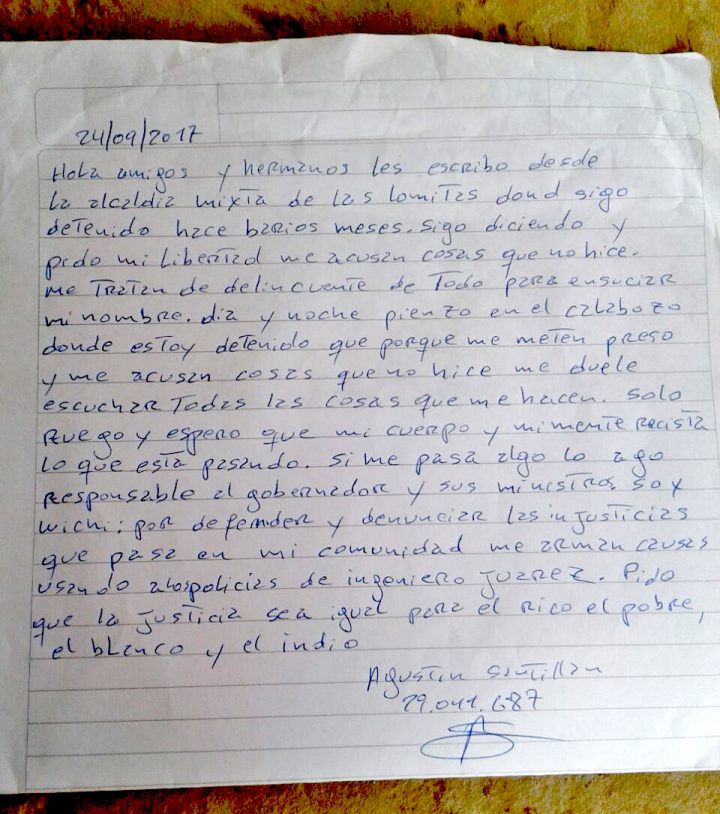 24/09/2017
Hola amigos y hermanos les escribo desde
la alcaldia mixta de las lomitas dond sigo
detenido hace barios meses. sigo diciendo y
pido mi libertad me acusan cosas que no hice.
me tratan de delincuente de todo para ensuciar
mi nombre. dia y noche pienzo en el calabozo
donde estoy detenido que porque me meten preso
y me acusan cosas que no hice me duele
escuchar todas las cosas que me hacen. solo
Ruego y espero que mi cuerpo y mi mente Recista
lo que esta pasando. si me pasa algo lo ago
Responsable al gobernador y sus ministros soy
wichi: por defemder y denunciar las injusticias
que pasa en mi comunidad me arman causas
usando alos policias de ingeniero juarez. Pido
que la justicia sea igual para el rico el pobre,
el blanco y el indio
Agustin Santillan
29.041.687